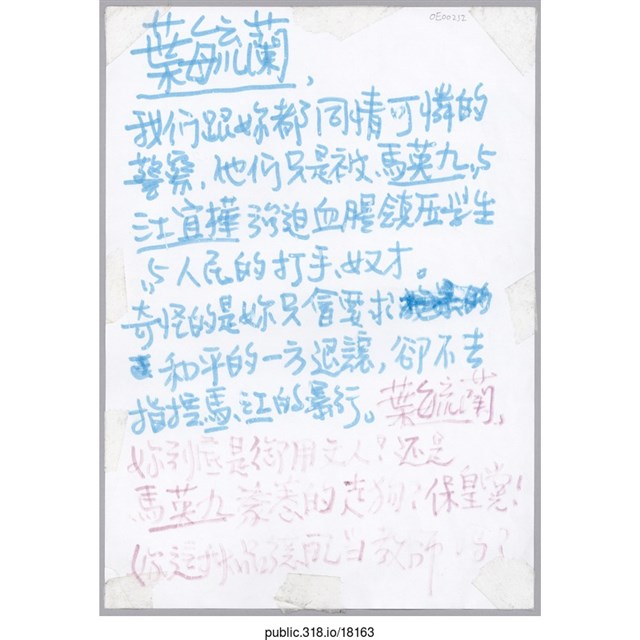 OE00252
葉毓蘭,
我们跟妳都同情可憐的
警察,他们只是被馬英九与
江宜樺強迫血腥鎮压学生
与人民的打手、奴才。
奇怪的是妳只會要求
和平的一方退讓,卻不去
指控馬、江的暴行。葉毓蘭,
妳到底是御用文人?还是
馬英九豢養的走狗?保皇黨!
妳這 配当教師嗎?
public.318.io/18163